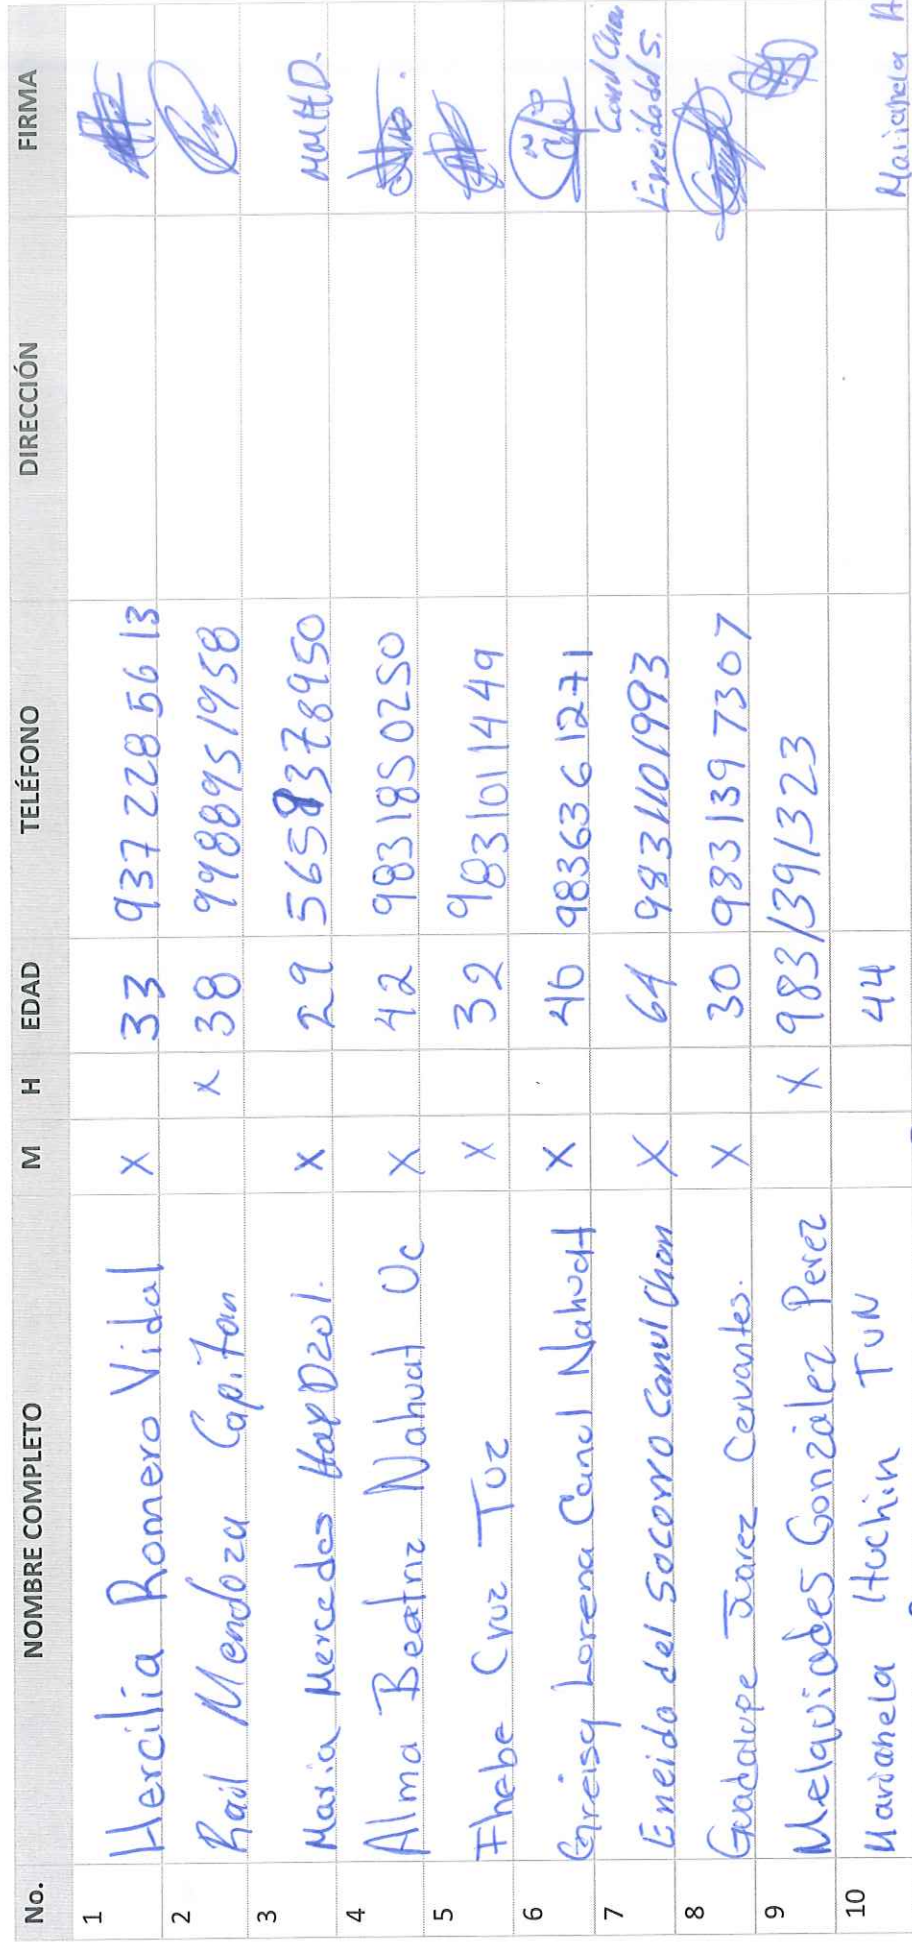 No. NOMBRE COMPLETO M H EDAD TELÉFONO DIRECCIÓN FIRMA
1 Hercilia Romero Vidal X 33 937 228 56 13
2 Raúl Mendoza Capitan x 38 9988951958
3 Maria Mercedes Hay Dzol. X 29 5658378950 MMHD.
4 Alma Beatriz Nahuat Uc X 42 9831850250
5 Fhebe Cruz Tuz X 32 9831011449
6 Greisy Lorena Canul Nahuat X 40 9836361271
7 Eneida del Socorro Canul Chan X 64 9831101993 Canul Chan
Eneida del S.
8 Guadalupe Juarez Cervantes. X 30 983 139 7307
9 Melquiades González Perez X 983/39/323
10 Marianela Huchin TUN 44 Marianela H